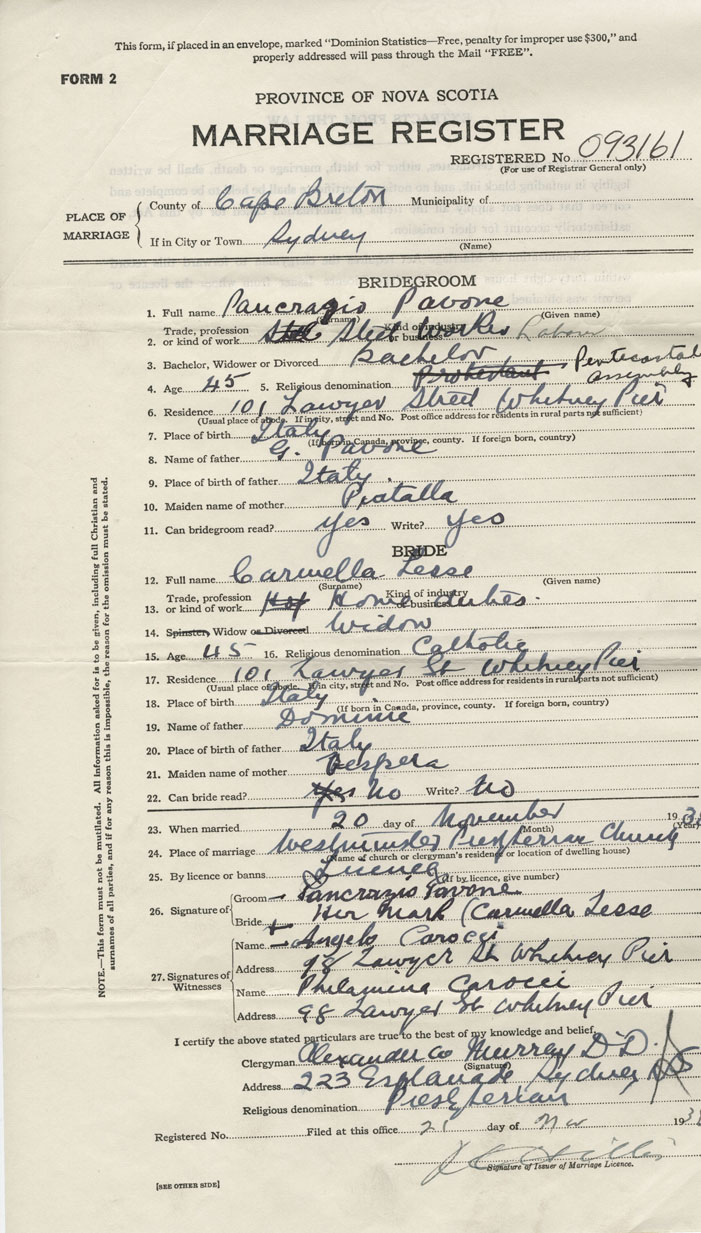 This form, if placed in an envelope, marked "Dominion Statistics—Free, penalty for improper use $300," and
properly addressed will pass through the Mail "FREE".
FORM 2
PROVINCE OF NOVA SCOTIA
MARRIAGE REGISTER
REGISTERED No. 093161
(For use of Registrar General only)
PLACE OF MARRIAGE
County of Cape Breton Municipality of
If in City or Town Sydney
(Name)
BRIDEGROOM
1. Full name Pancrazio Pavone
(Surname) (Given name)
2. Trade, profession or kind of work Steel Worker Kind of industry or business Labour
3. Bachelor, Widower or Divorced Bachelor
4. Age 45 5. Religious denomination Protestant Pentecostal assembly
6. Residence 101 Lawyer Street Whitney Pier
(Usual place of abode. If in city, street and No. Post office address for residents in rural parts not sufficient)
7. Place of birth Italy
(If born in Canada, province, county. If foreign born, country)
8. Name of father G. Pavone
9. Place of birth of father Italy
10. Maiden name of mother Piatalla
11. Can bridegroom read? yes Write? yes
BRIDE
12. Full name Carmella Lesse
(Surname) (Given name)
13. Trade, profession or kind of work Home duties. Kind of industry or business
14. Spinster, Widow or Divorced Widow
15. Age 45 16. Religious denomination Catholic
17. Residence 101 Lawyer St Whitney Pier
(Usual place of abode. If in city, street and No. Post office address for residents in rural parts not sufficient)
18. Place of birth Italy
(If born in Canada, province, county. If foreign born, country)
19. Name of father Dominic
20. Place of birth of father Italy
21. Maiden name of mother Vespera
22. Can bride read? Yes No Write? No
23. When married 20 day of November 193
(Month) (Year)
24. Place of marriage Westminster Presbyterian Church
(Name of church or clergyman's residence or location of dwelling house)
25. By licence or banns Licence
(If by licence, give number)
26. Signature of
Groom Pancrazio Pavone
Bride + Her Mark (Carmella Lesse
27. Signatures of Witnesses
Name Angelo Carocci
Address 98 Lawyer St Whitney Pier
Name Philamina Carocci
Address 98 Lawyer St Whitney Pier
I certify the above stated particulars are true to the best of my knowledge and belief,
Clergyman Alexander Murray D.D.
(Signature)
Address 223 Esplanade, Sydney NS
Religious denomination Presbyterian
Registered No. Filed at this office 21 day of Nov 193
Signature of Issuer of Marriage Licence.
[SEE OTHER SIDE]
NOTE.—This form must not be mutilated. All information asked for is to be given, including full Christian and
surnames of all parties, and if for any reason this is impossible, the reason for the omission must be stated.